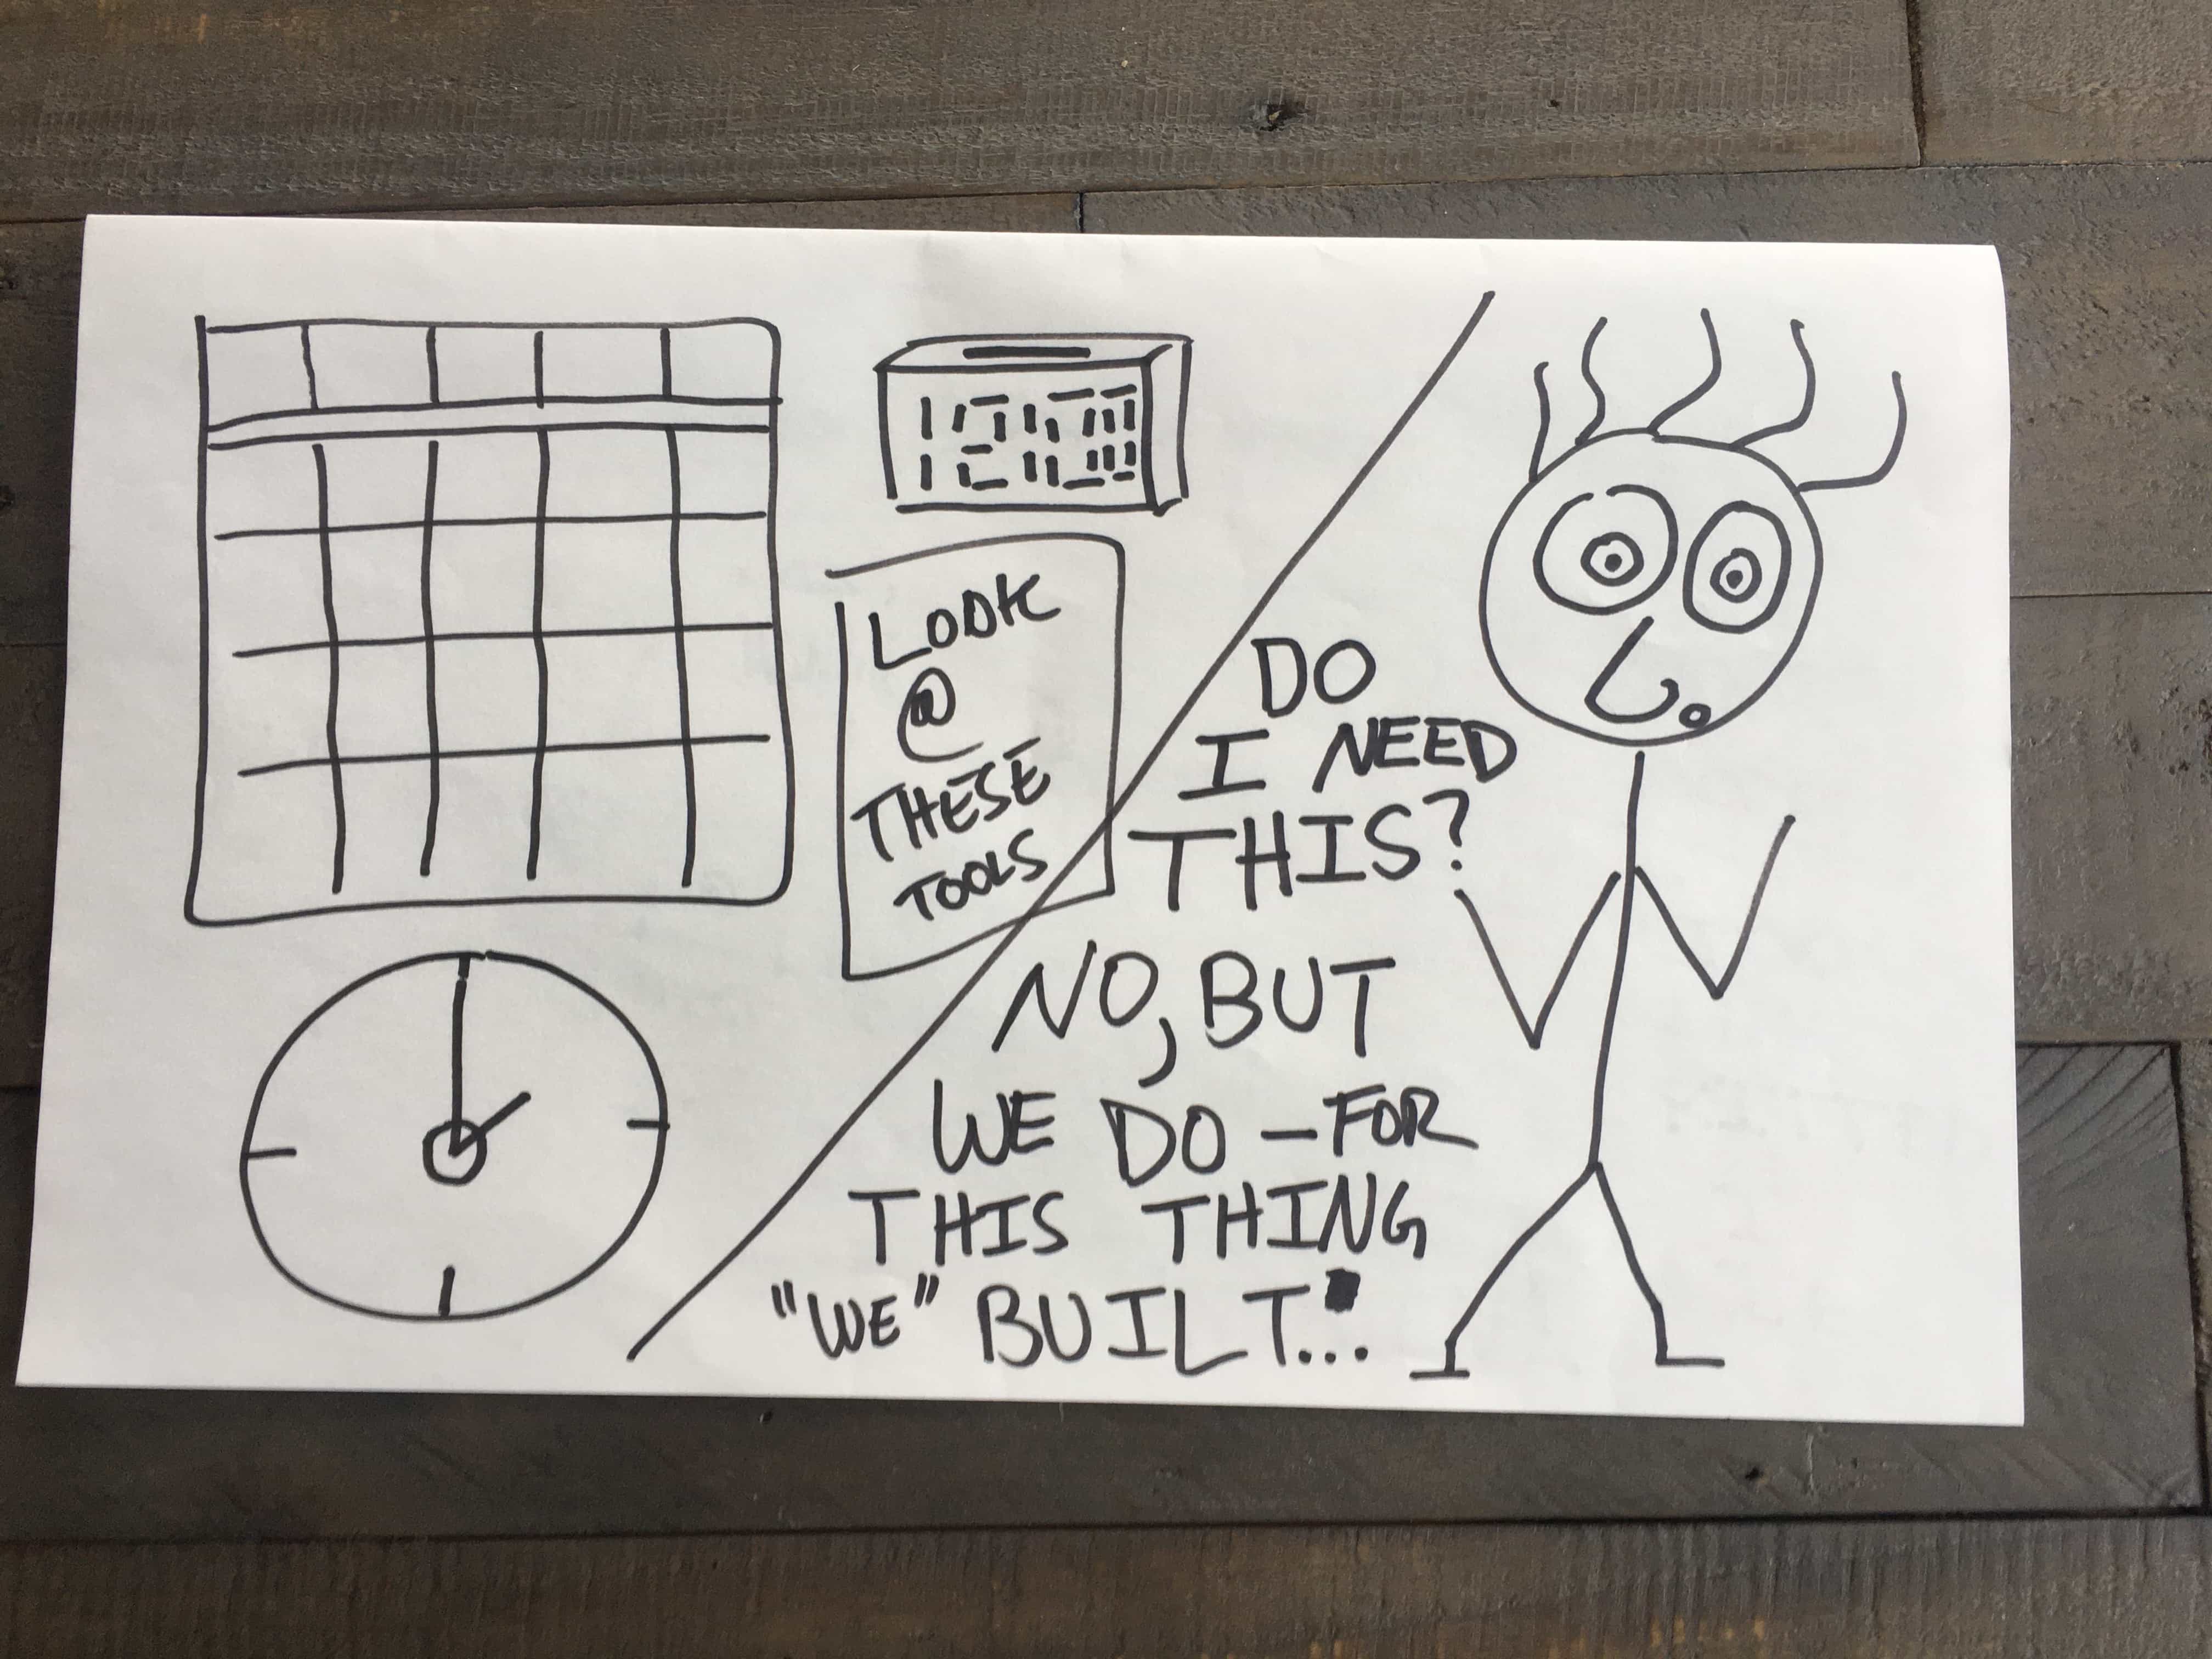 LOOK
@
THESE
TOOLS
DO
I NEED
THIS?
NO, BUT
WE DO – FOR
THIS THING
"WE" BUILT...